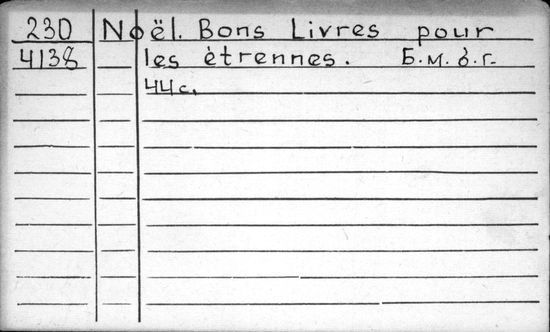 230 Noël. Bons Livres pour
4138 les ètrennes. Б.м. б.г.
44 с.